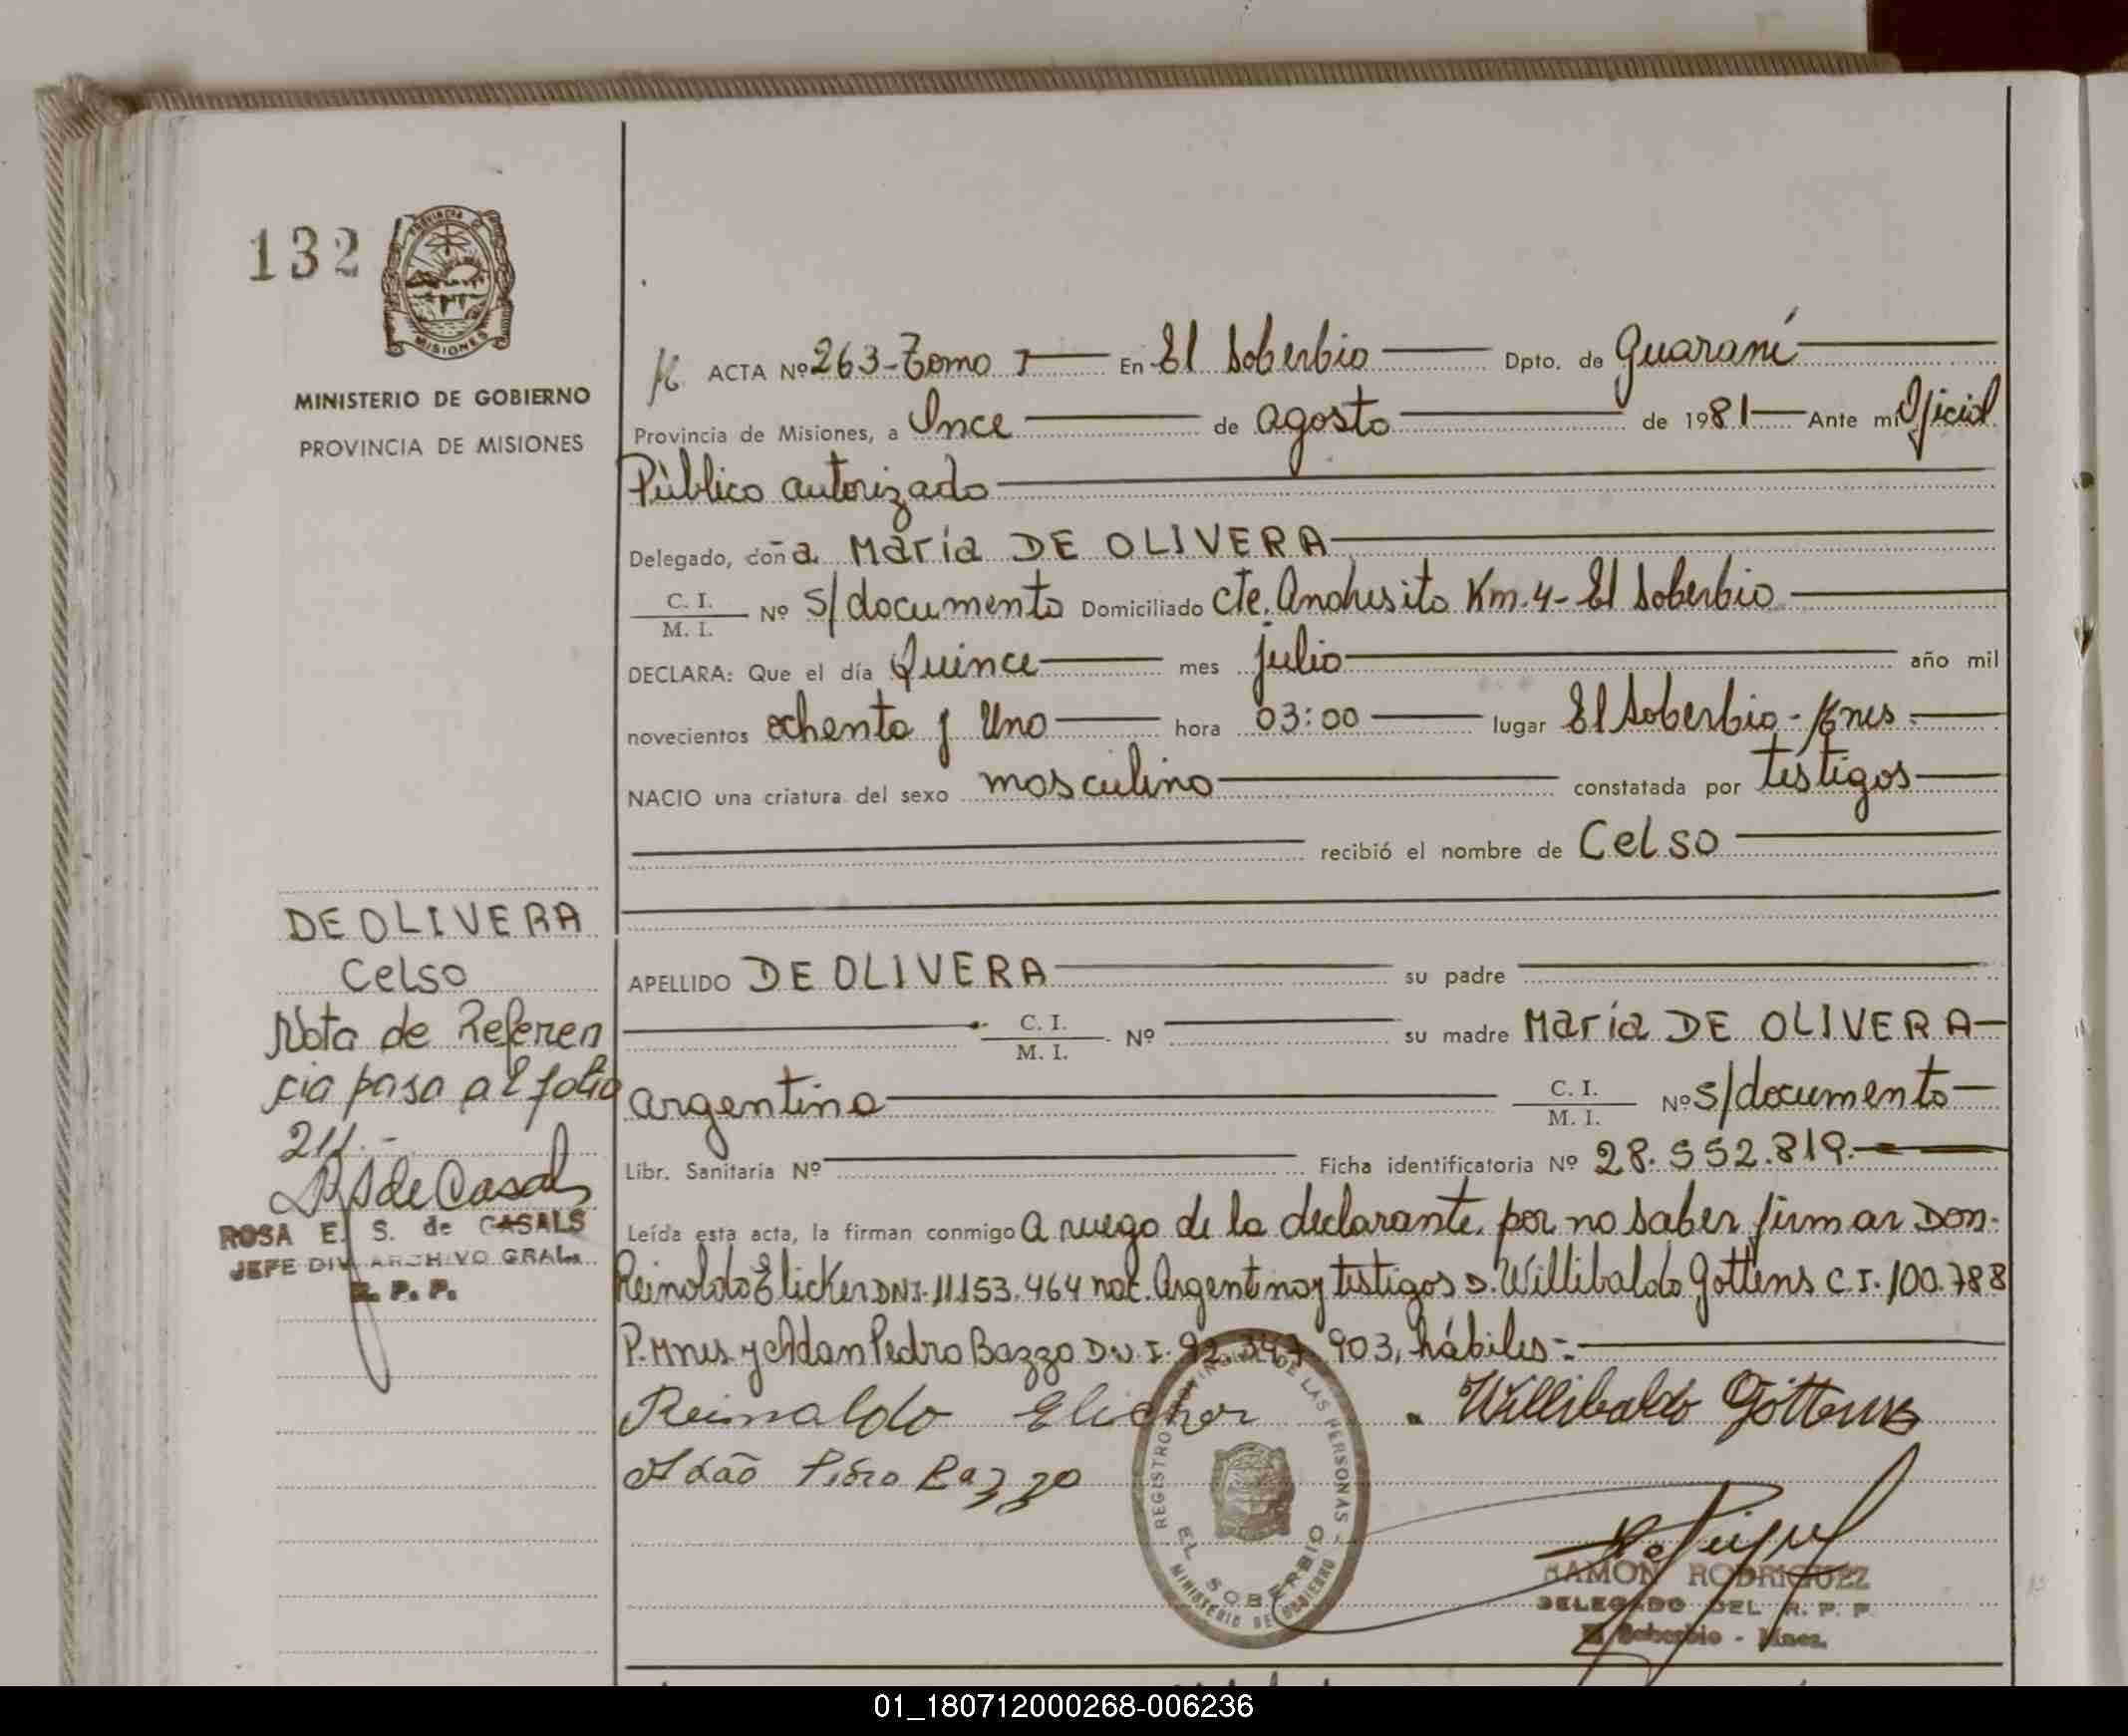 132
PROVINCIA DE
MISIONES
MINISTERIO DE GOBIERNO
PROVINCIA DE MISIONES
DE OLIVERA
Celso
Nota de Referen
cia pasa al folio
211.-
RSdeCasals
ROSA E. S. de CASALS
JEFE DIV. ARCHIVO GRAL.
R. P. P.
ACTA Nº 263-Tomo I En El Soberbio Dpto. de Guaraní
Provincia de Misiones, a Once de agosto de 1981 Ante mí Oficial
Público autorizado
Delegado, doña María DE OLIVERA
C. I. / M. I. Nº s/documento Domiciliado Cte. Andresito Km.4- El Soberbio
DECLARA: Que el día Quince mes julio año mil
novecientos ochenta y Uno hora 03:00 lugar El Soberbio-Mnes.
NACIO una criatura del sexo masculino constatada por testigos
recibió el nombre de Celso
APELLIDO DE OLIVERA su padre
C. I. / M. I. Nº su madre María DE OLIVERA
argentina C. I. / M. I. Nº s/documento
Libr. Sanitaria Nº Ficha identificatoria Nº 28.552.819.-
Leída esta acta, la firman conmigo a ruego de la declarante, por no saber firmar Don.
Reinoldo Elicker DNI. 11153.464 nac. Argentino y testigos D. Willibaldo Gottens C.I. 100.788
P.Mnes y Adan Pedro Bazzo D.N.I. 92.347.903, hábiles.-
Reinaldo Elicker Willibaldo Göttens
Adão Pedro Bazzo
REGISTRO PROVINCIAL DE LAS PERSONAS
EL SOBERBIO
MINISTERIO DE GOBIERNO
RAMON RODRIGUEZ
DELEGADO DEL R. P. P.
El Soberbio - Mnes.
01_180712000268-006236